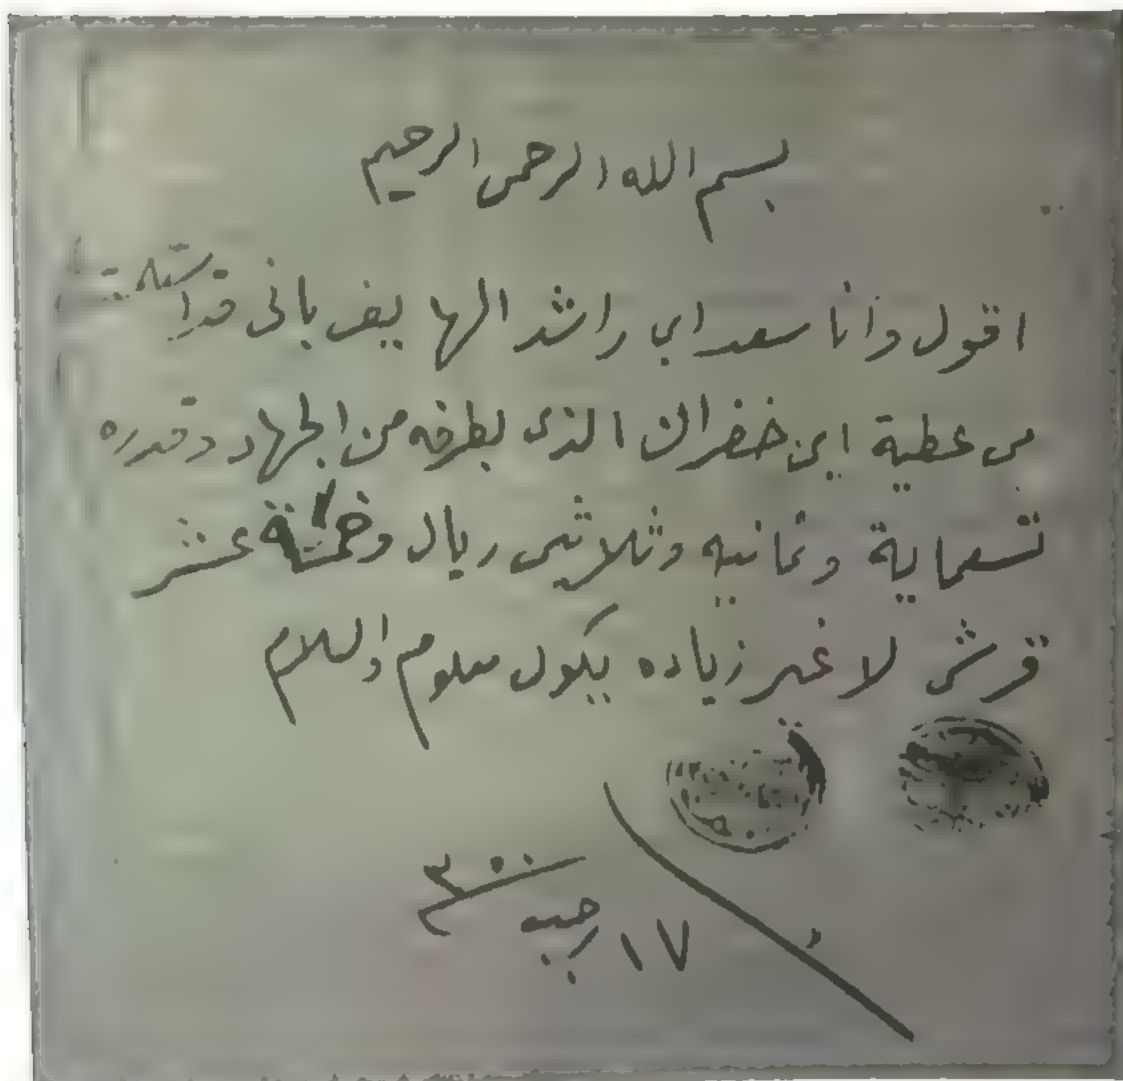 بسم الله الرحمن الرحيم
اقول وانا سعد ابن راشد الهايف باني قد استلمت
من عطية ابن خضران الذى بطرفه من الجهاد وقدره
تسعماية وثمانيه وثلاثين ريال وخمسة عشر
قرش لا غير زياده يكون معلوم والسلام
١٧ رجب